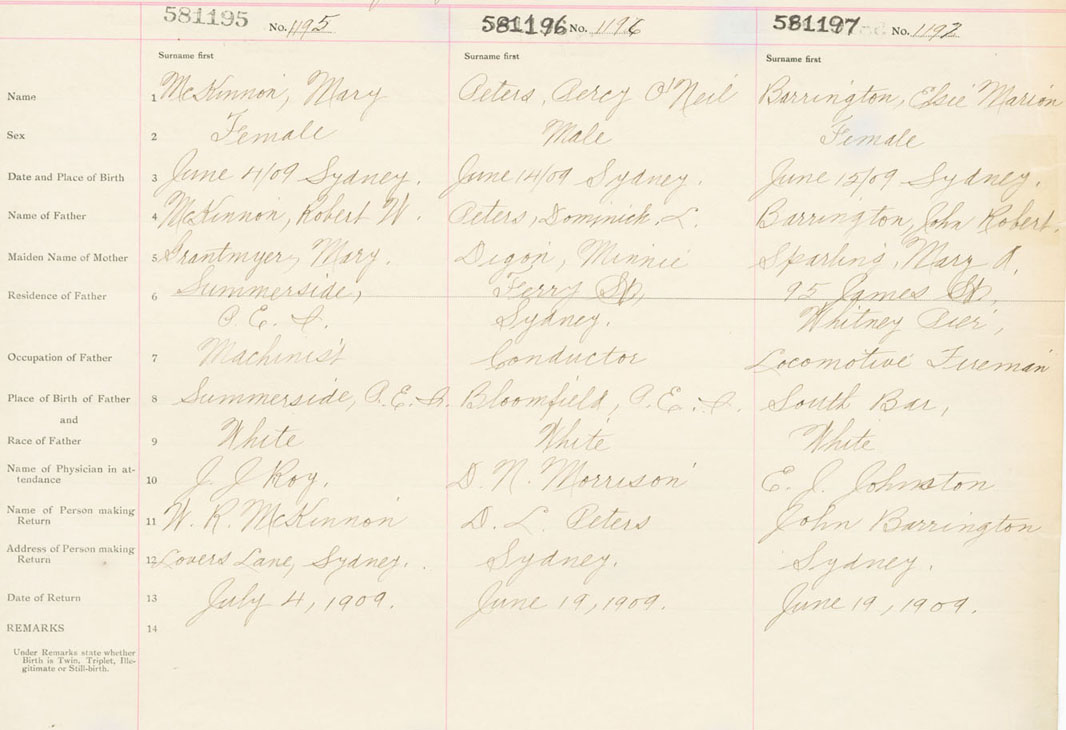 581195 No. 1195 581196 No. 1196 581197 No. 1197
Surname first Surname first Surname first
Name 1 McKinnon, Mary Peters, Percy O'Neil Barrington, Elsie Marion
Sex 2 Female Male Female
Date and Place of Birth 3 June 4/09 Sydney. June 14/09 Sydney. June 15/09 Sydney.
Name of Father 4 McKinnon, Robert W. Peters, Dominick L. Barrington, John Robert.
Maiden Name of Mother 5 Grantmyer, Mary. Digon, Minnie Sparling, Mary A.
Residence of Father 6 Summerside, Ferry St, 95 James St,
P. E. I. Sydney. Whitney Pier,
Occupation of Father 7 Machinist Conductor Locomotive Fireman
Place of Birth of Father 8 Summerside, P.E.I. Bloomfield, P.E.I. South Bar,
and
Race of Father 9 White White White
Name of Physician in at-
tendance 10 J. J. Roy. D. N. Morrison E. J. Johnston
Name of Person making
Return 11 W. R. McKinnon D. L. Peters John Barrington
Address of Person making
Return 12 Lovers Lane, Sydney. Sydney. Sydney.
Date of Return 13 July 4, 1909. June 19, 1909. June 19, 1909.
REMARKS 14
Under Remarks state whether
Birth is Twin, Triplet, Ille-
gitimate or Still-birth.